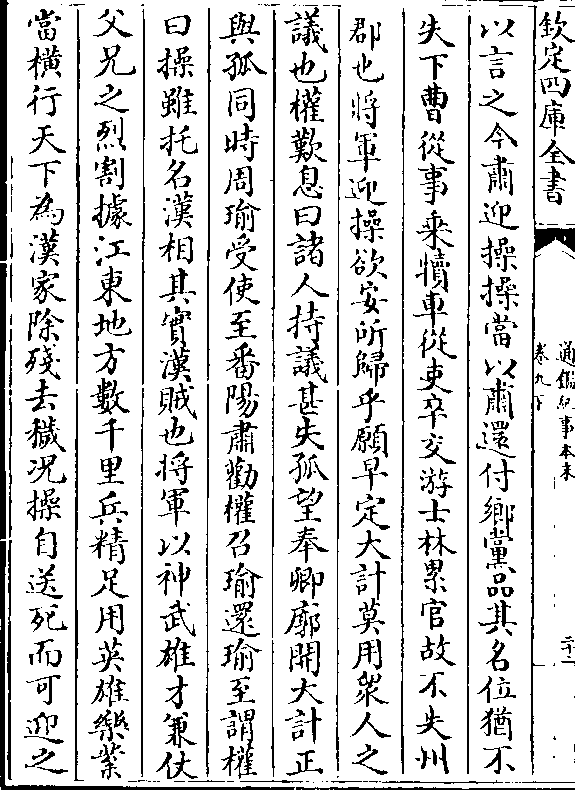 欽定四庫全書
通鑑紀事本末
卷九下
二十一
以言之今肅迎操操當以肅還付鄉黨品其名位猶不
失下曹從事乘犢車從吏卒交游士林累官故不失州
郡也將軍迎操欲安所歸乎願早定大計莫用衆人之
議也權歎息曰諸人持議甚失孤望今卿廓開大計正
與孤同時周瑜受使至番陽肅勸權召瑜還瑜至謂權
曰操雖托名漢相其實漢賊也將軍以神武雄才兼仗
父兄之烈割據江東地方數千里兵精足用英雄樂業
當橫行天下為漢家除殘去穢况操自送死而可迎之